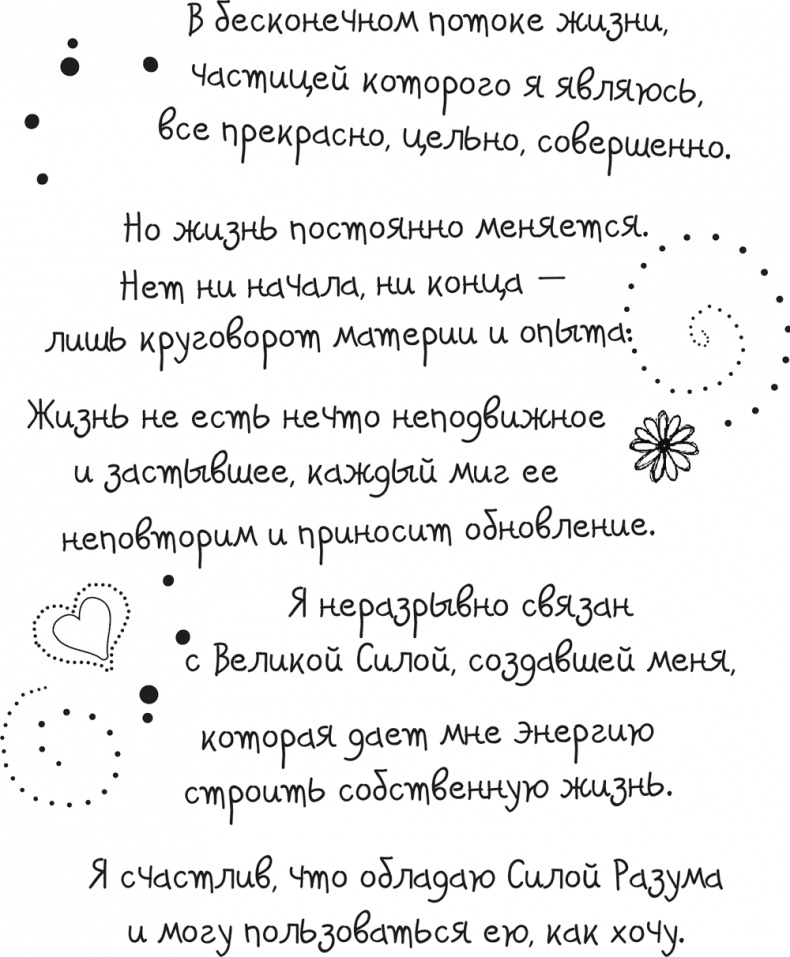 В бесконечном потоке жизни,
частицей которого я являюсь,
все прекрасно, цельно, совершенно.
Но жизнь постоянно меняется.
Нет ни начала, ни конца —
лишь круговорот материи и опыта:
Жизнь не есть нечто неподвижное
и застывшее, каждый миг ее
неповторим и приносит обновление.
Я неразрывно связан
с Великой Силой, создавшей меня,
которая дает мне энергию
строить собственную жизнь.
Я счастлив, что обладаю Силой Разума
и могу пользоваться ею, как хочу.